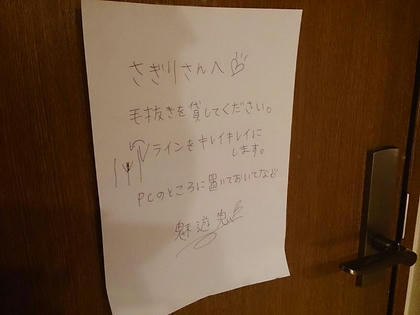 さぎりさんへ
毛抜きを貸してください。
Vラインをキレイキレイに
します。
PCのところに置いておいてなど